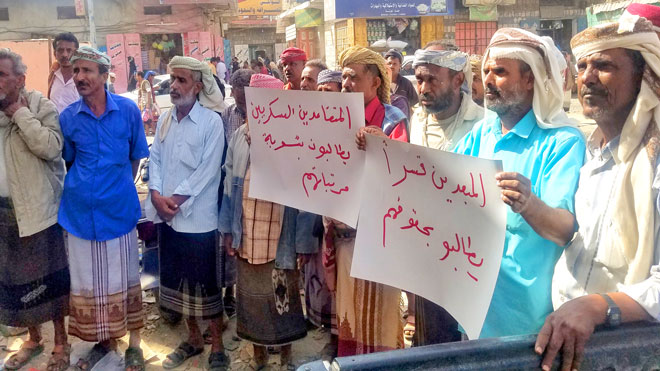 المتقاعدين العسكريين
يطالبون بتسوية
مرتباتهم
المبعدين قسراً
يطالبو بحقوقهم